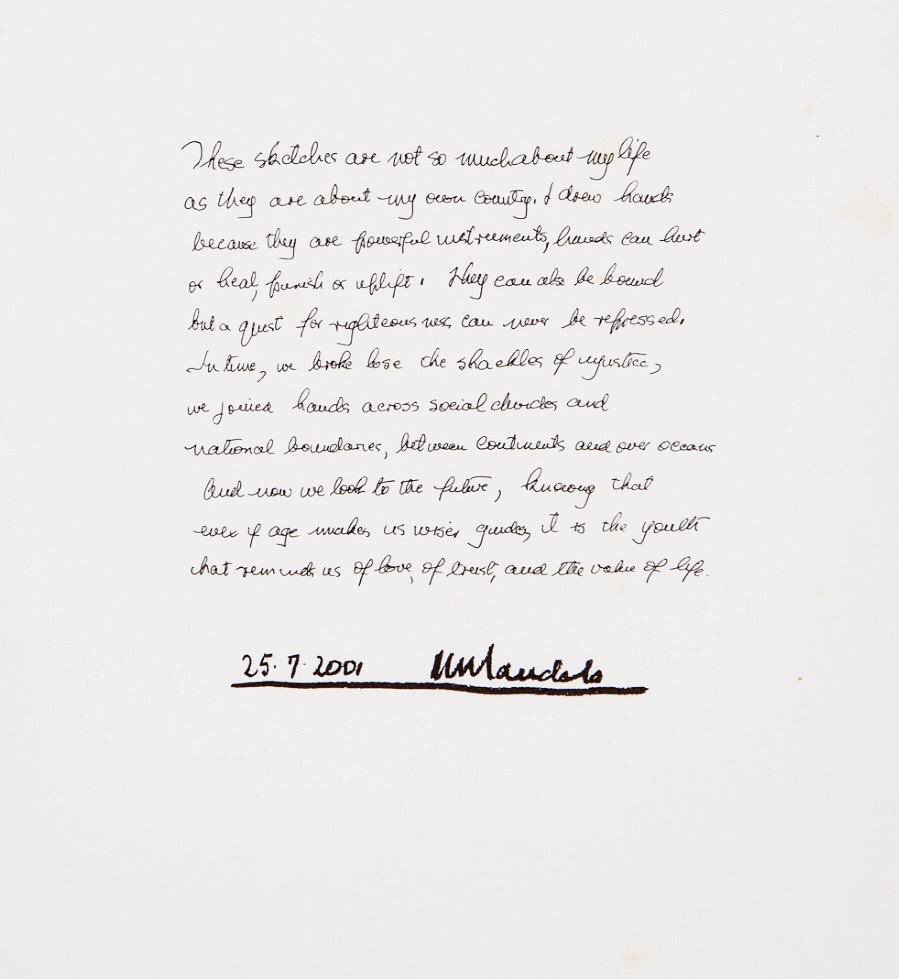 These sketches are not so much about my life
as they are about my own country. I drew hands
because they are powerful instruments, hands can hurt
or heal, punish or uplift. They can also be bound
but a quest for righteousness can never be repressed.
In time, we broke lose the shackles of injustice,
we joined hands across social divides and
national boundaries, between continents and over oceans
And now we look to the future, knowing that
even if age makes us wiser guides, it is the youth
that reminds us of love, of trust, and the value of life.
25.7.2001 NMandela